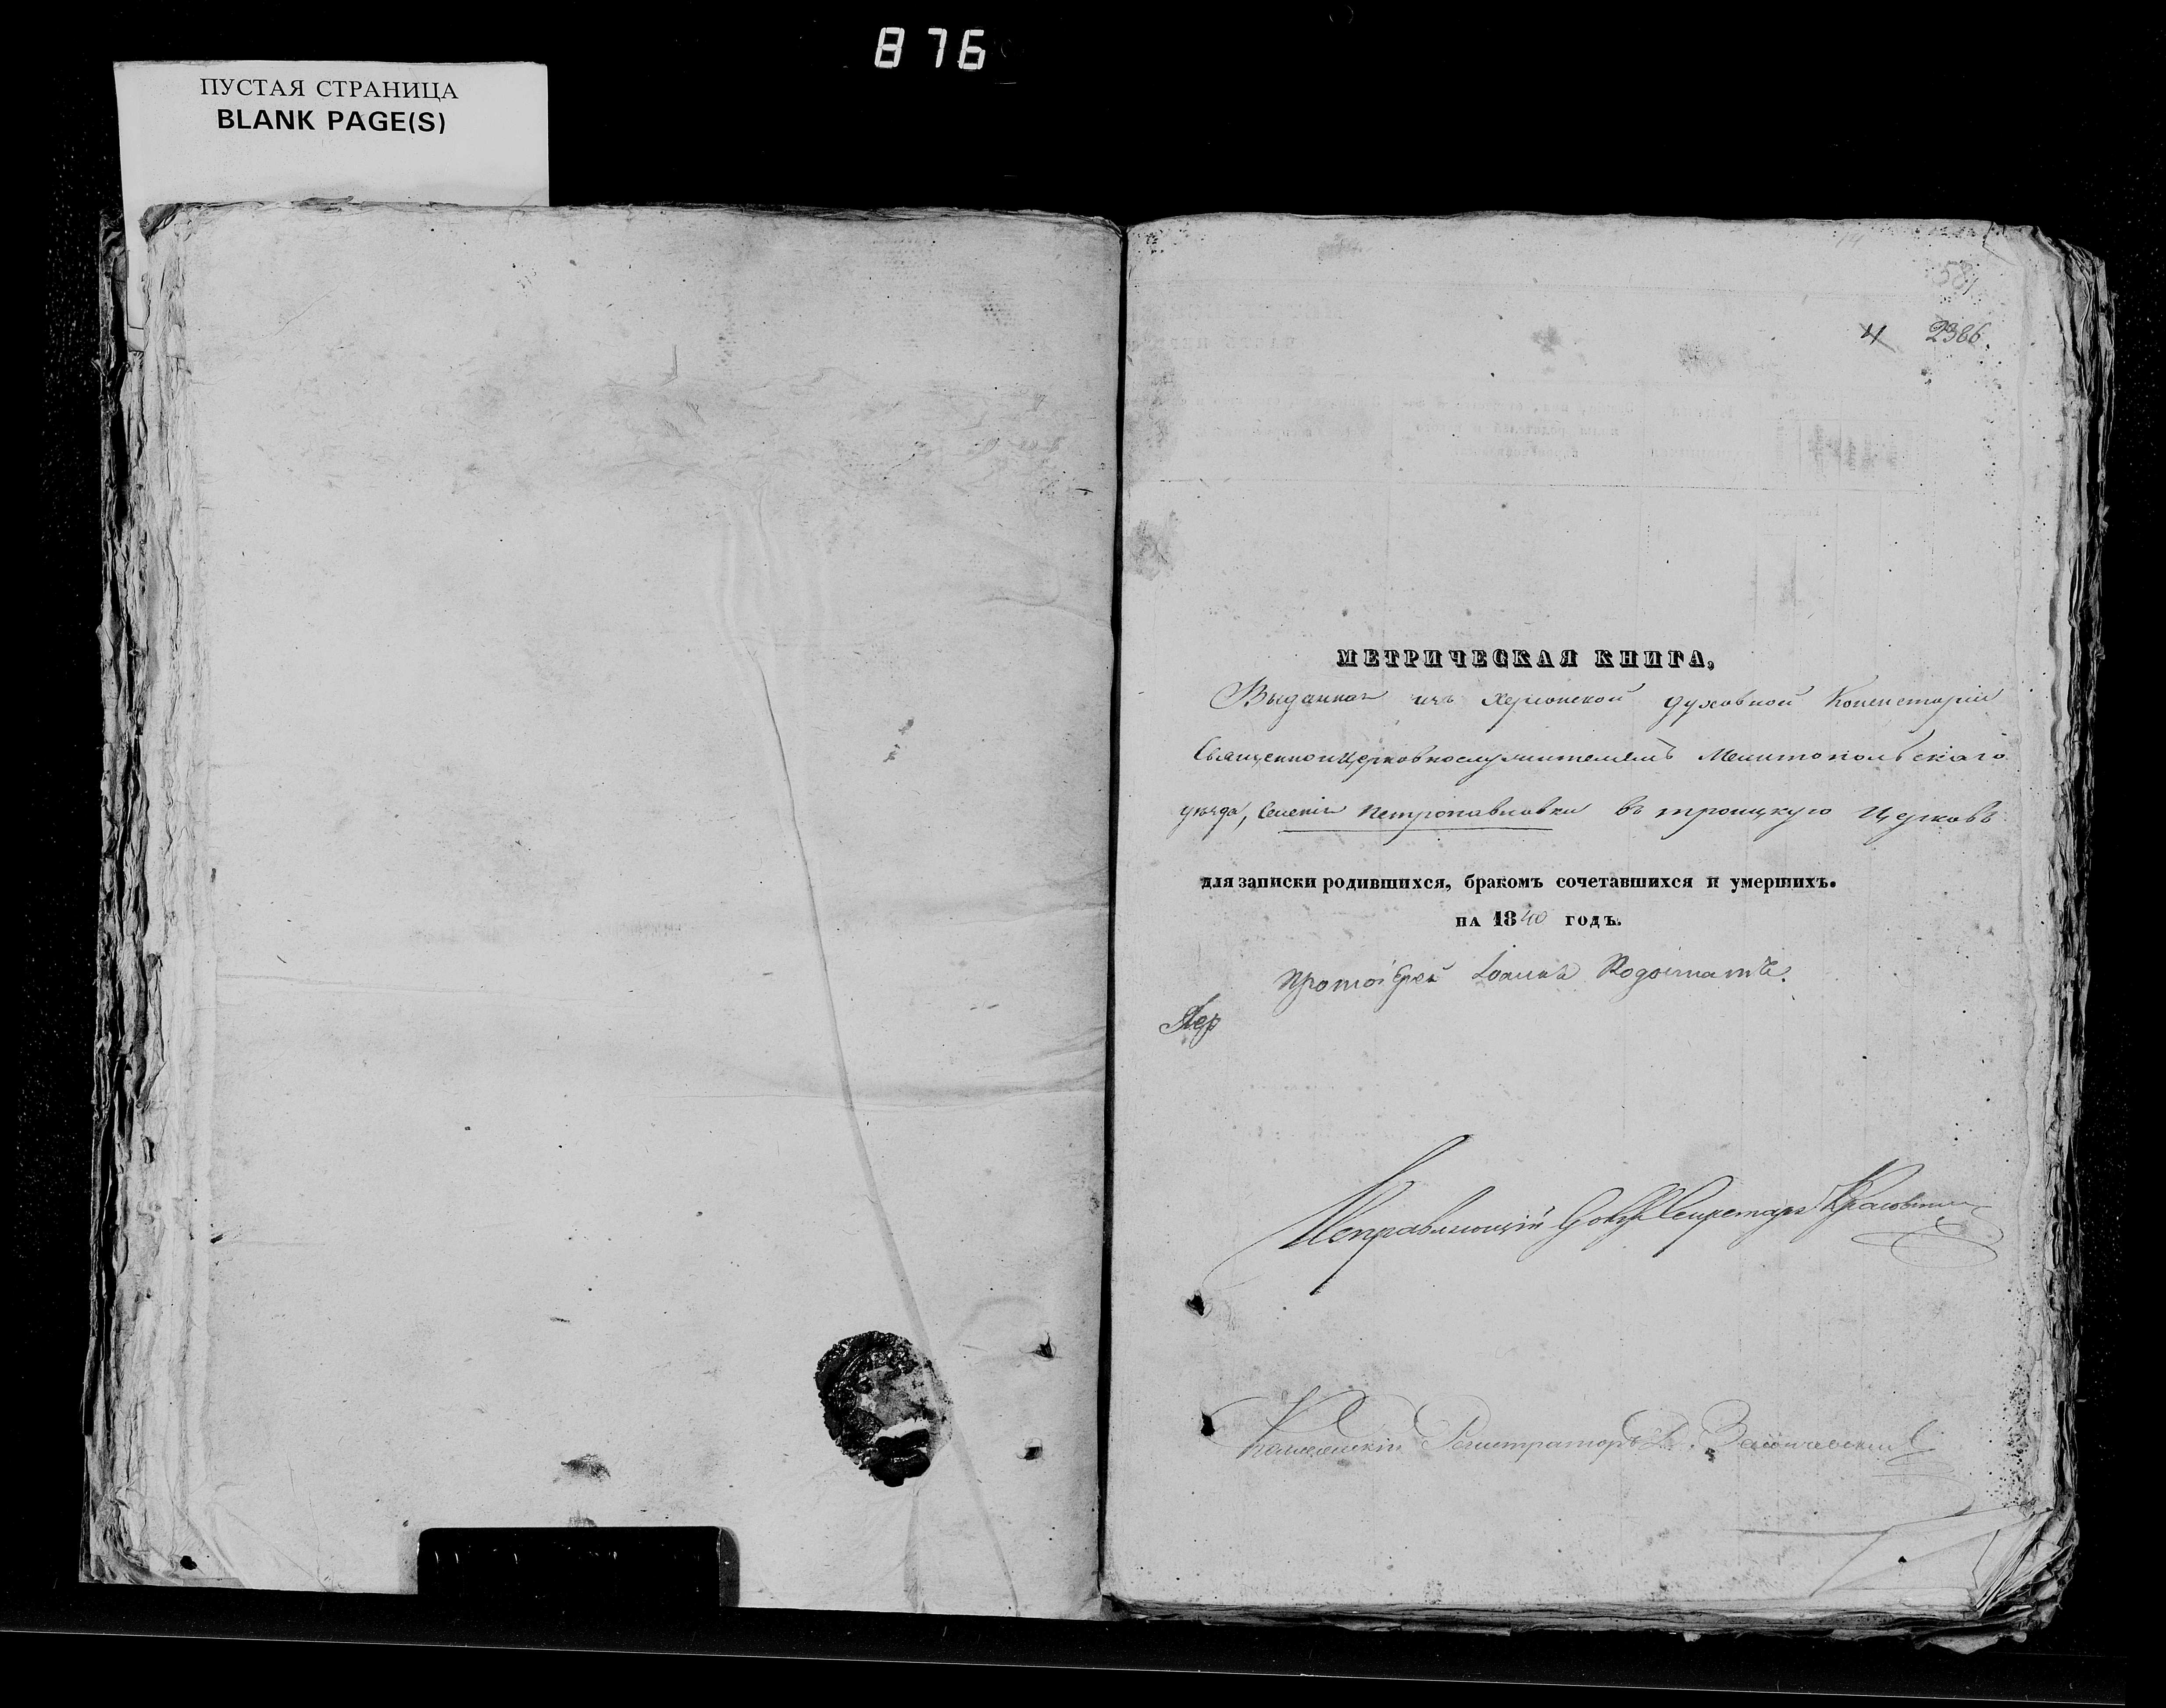 876
ПУСТАЯ СТРАНИЦА
BLANK PAGE(S)
581
4 2386.
МЕТРИЧЕСКАЯ КНИГА,
Выданная изъ Херсонской духовной Консисторіи
Священноицерковнослужителямъ Мелитопольскаго
уѣзда, Селенія Петропавловки въ троицкую Церковь
для записки родившихся, бракомъ сочетавшихся и умершихъ.
на 1840 годъ.
Протоіерей Іоаннъ
Исправляющій Секретаря
Коллежскій Регистраторъ